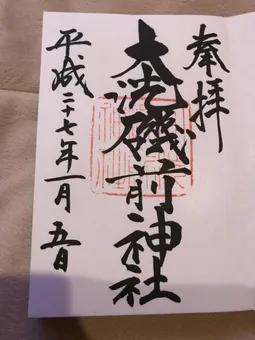 奉拝
大洗磯前神社
平成二十七年一月五日